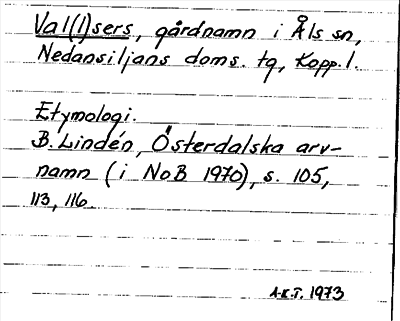 Val(l)sers, gårdnamn i Åls sn,
Nedansiljans doms. tg, Kopp. l.
Etymologi.
B. Lindén, Österdalska arv-
namn (i NoB 1970), s. 105,
113, 116.
A-K.T. 1973